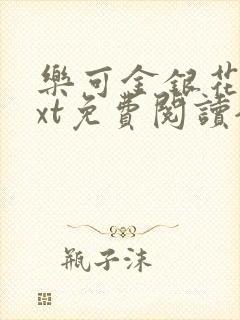 樂可金銀花
xt免費閱讀
瓶子沫